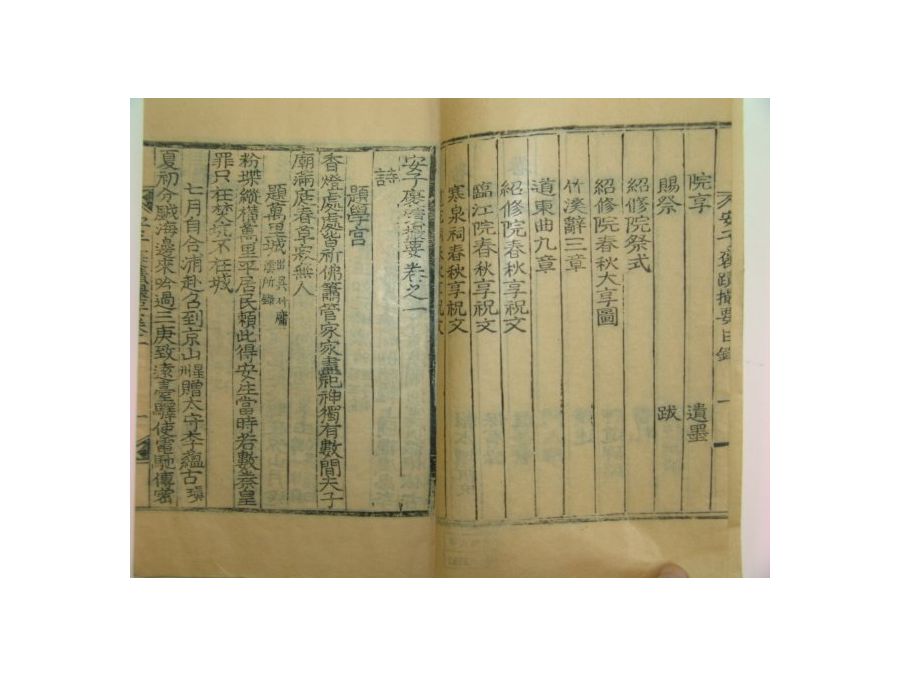 院享 遺墨
賜祭 跋
紹修院祭式
紹修院春秋大享圖
竹溪辭三章
道東曲九章
紹修院春秋享祝文
臨江院春秋享祝文
寒泉祠春秋享祝文
春秋享祝文
安子褒蹟撮要目錄 一
安子褒蹟撮要卷之一
詩
題學宮
香燈處處皆祈佛簫管家家盡祀神獨有數間夫子
廟滿庭春草寂無人
題萬里城
粉堞縱橫萬里平居民賴此得安生當時若數秦皇
罪只在焚坑不在城
七月自合浦赴召到京山星州贈太守李蘊古
夏初分
海邊來吟過三庚致遠臺驛使
馳傳密